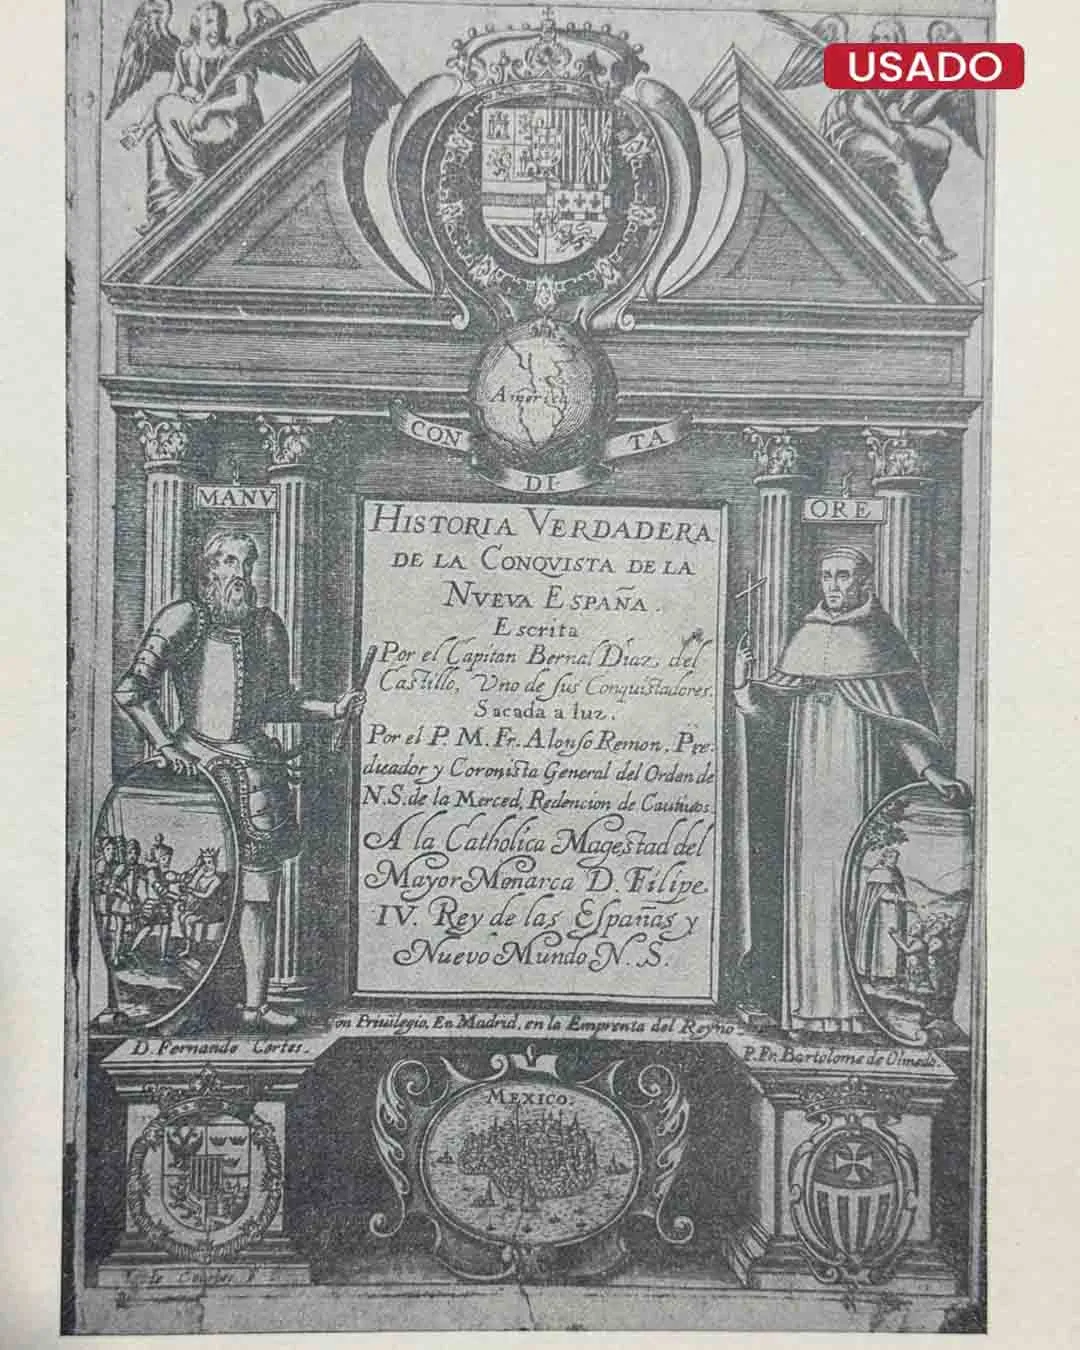 USADO
America
CON
DI
TA
MANV
ORE
HISTORIA VERDADERA
DE LA CONQVISTA DE LA
NVEVA ESPAÑA.
Escrita
Por el Capitan Bernal Diaz, del
Castillo, Vno de sus Conquistadores.
Sacada a luz.
Por el P. M. Fr. Alonso Remon, Pre-
dicador y Coronista General del Orden de
N.S. de la Merced, Redencion de Cautivos.
A la Catholica Magestad del
Mayor Monarca D. Filipe.
IV. Rey de las Españas y
Nuevo Mundo N. S.
on Privilegio, En Madrid, en la Emprenta del Reyno
D. Fernando Cortes.
P. Fr. Bartolome de Olmedo.
MEXICO.